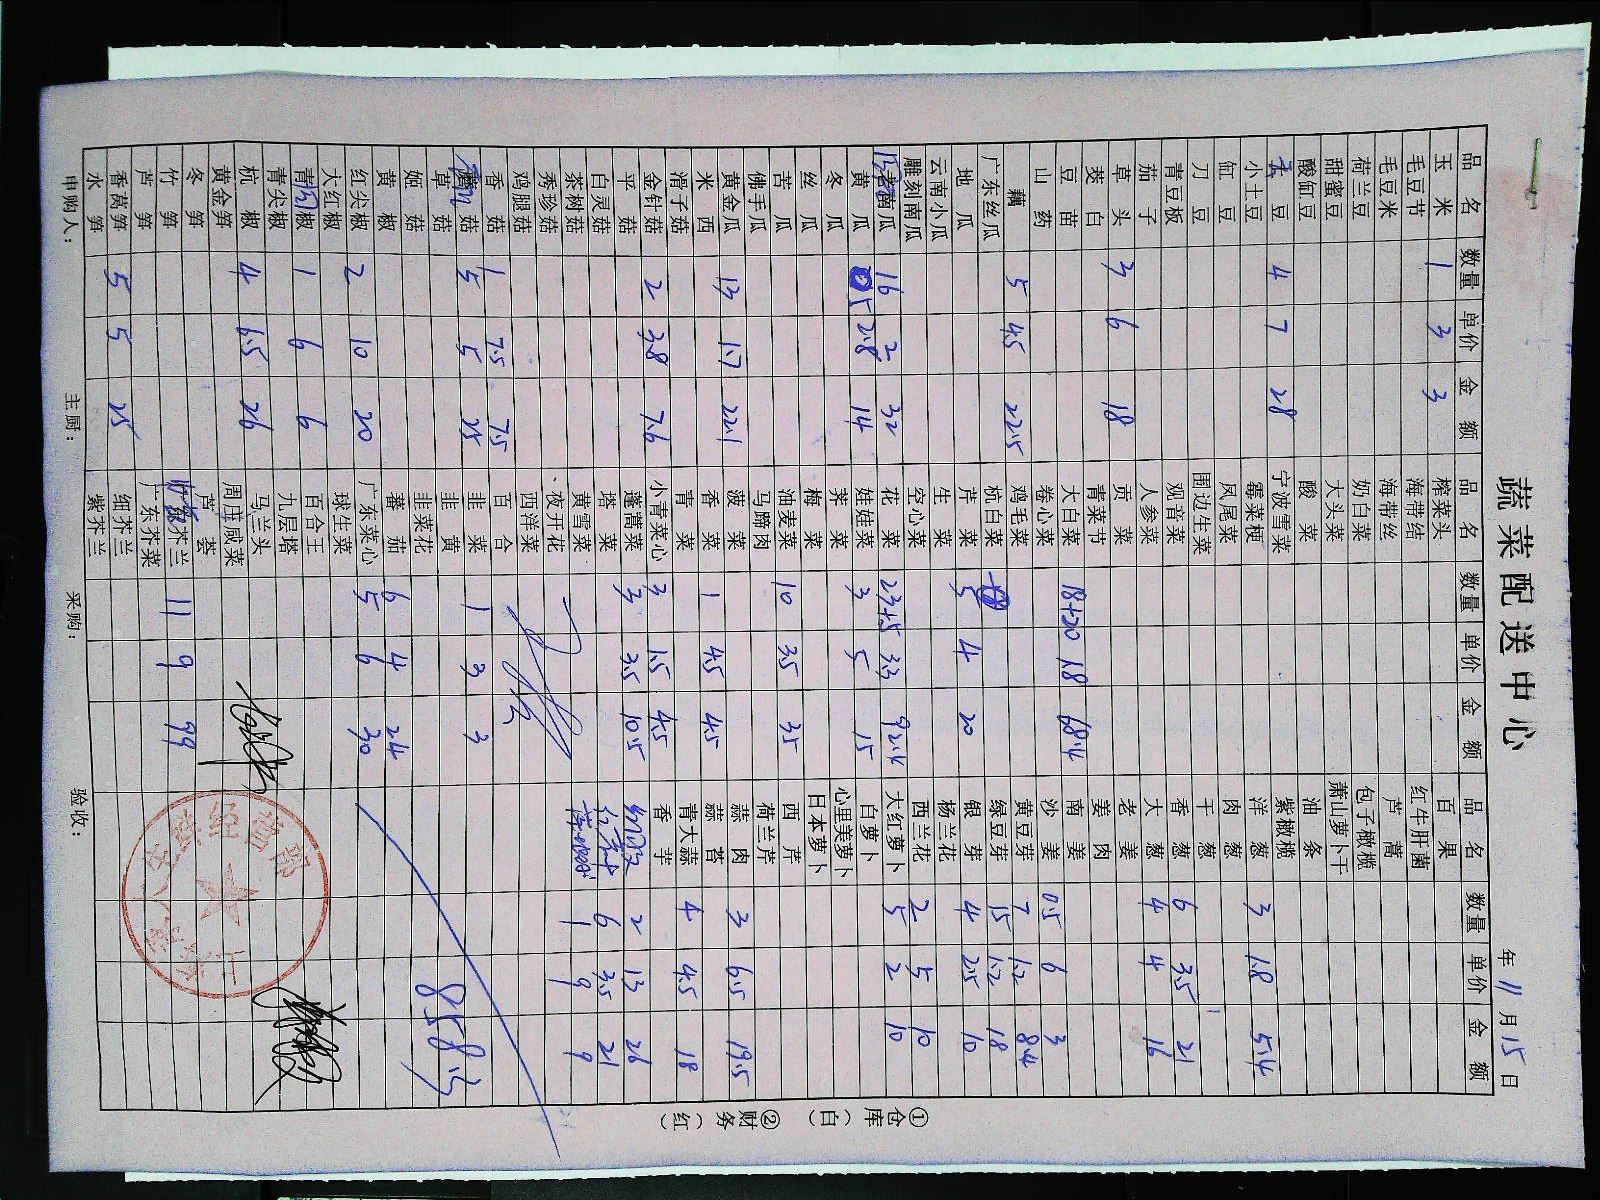 蔬菜配送中心
年 11 月 15 日
品名 数量 单价 金额 品名 数量 单价 金额 品名 数量 单价 金额
玉米 1 3 3 榨菜头 百果
毛豆节 海带结 红牛肝菌
毛豆米 海带丝 芦蒿
荷兰豆 奶白菜 包子橄榄
甜蜜豆 大头菜 萧山萝卜干
酸缸豆 酸菜 油条
土豆 4 7 28 宁波雪菜 紫橄榄
小土豆 霉菜梗 洋葱 3 1.8 5.4
缸豆 凤尾菜 肉葱
刀豆 围边生菜 干葱
青豆板 观音菜 香葱 6 3.5 21
茄子 人参菜 大葱 4 4 16
草头 3 6 18 贡菜 老姜
茭白 青菜节 姜肉
豆苗 大白菜 18+20 1.8 68.4 南姜
山药 卷心菜 沙姜 0.5 6 3
藕 5 4.5 22.5 鸡毛菜 黄豆芽 7 1.2 8.4
广东丝瓜 杭白菜 绿豆芽 15 1.2 18
地瓜 芹菜 5 4 20 银芽 4 2.5 10
云南小瓜 生菜 杨兰花
雕刻南瓜 空心菜 西兰花 2 5 10
老南瓜 16 2 32 花菜 23+5 3.3 92.4 大红萝卜 5 2 10
黄瓜 5 2.8 14 娃娃菜 3 5 15 白萝卜
冬瓜 荠菜 心里美萝卜
丝瓜 梅菜 日本萝卜
苦瓜 油麦菜 10 3.5 35 西芹
佛手瓜 马蹄肉 荷兰芹
黄金瓜 13 1.7 22.1 菠菜 蒜肉 3 6.5 19.5
米西 香菜 1 4.5 4.5 蒜苔
滑子菇 青菜 青大蒜 4 4.5 18
金针菇 2 3.8 7.6 小青菜心 3 1.5 4.5 香芋
平菇 蓬蒿菜 3 3.5 10.5 2 13 26
白灵菇 塔菜 6 3.5 21
茶树菇 黄雪菜 1 9 9
秀珍菇 夜开花
鸡腿菇 西洋菜
香菇 1 7.5 7.5 百合
菇 5 5 25 韭菜 1 3 3
草菇 韭黄
姬菇 韭菜花 858.3
黄椒 蕃茄 6 4 24
红尖椒 2 10 20 广东菜心 5 6 30
大红椒 球生菜
青圆椒 1 6 6 百合王
青尖椒 九层塔
杭椒 4 6.5 26 马兰头
黄金笋 周庄咸菜
冬笋 芦荟
竹笋 芥兰 11 9 99
芦笋 广东芥菜
香莴笋 5 5 25 细芥兰
水笋 紫芥兰
申购人： 主厨： 采购： 验收：
①仓库（白） ②财务（红）